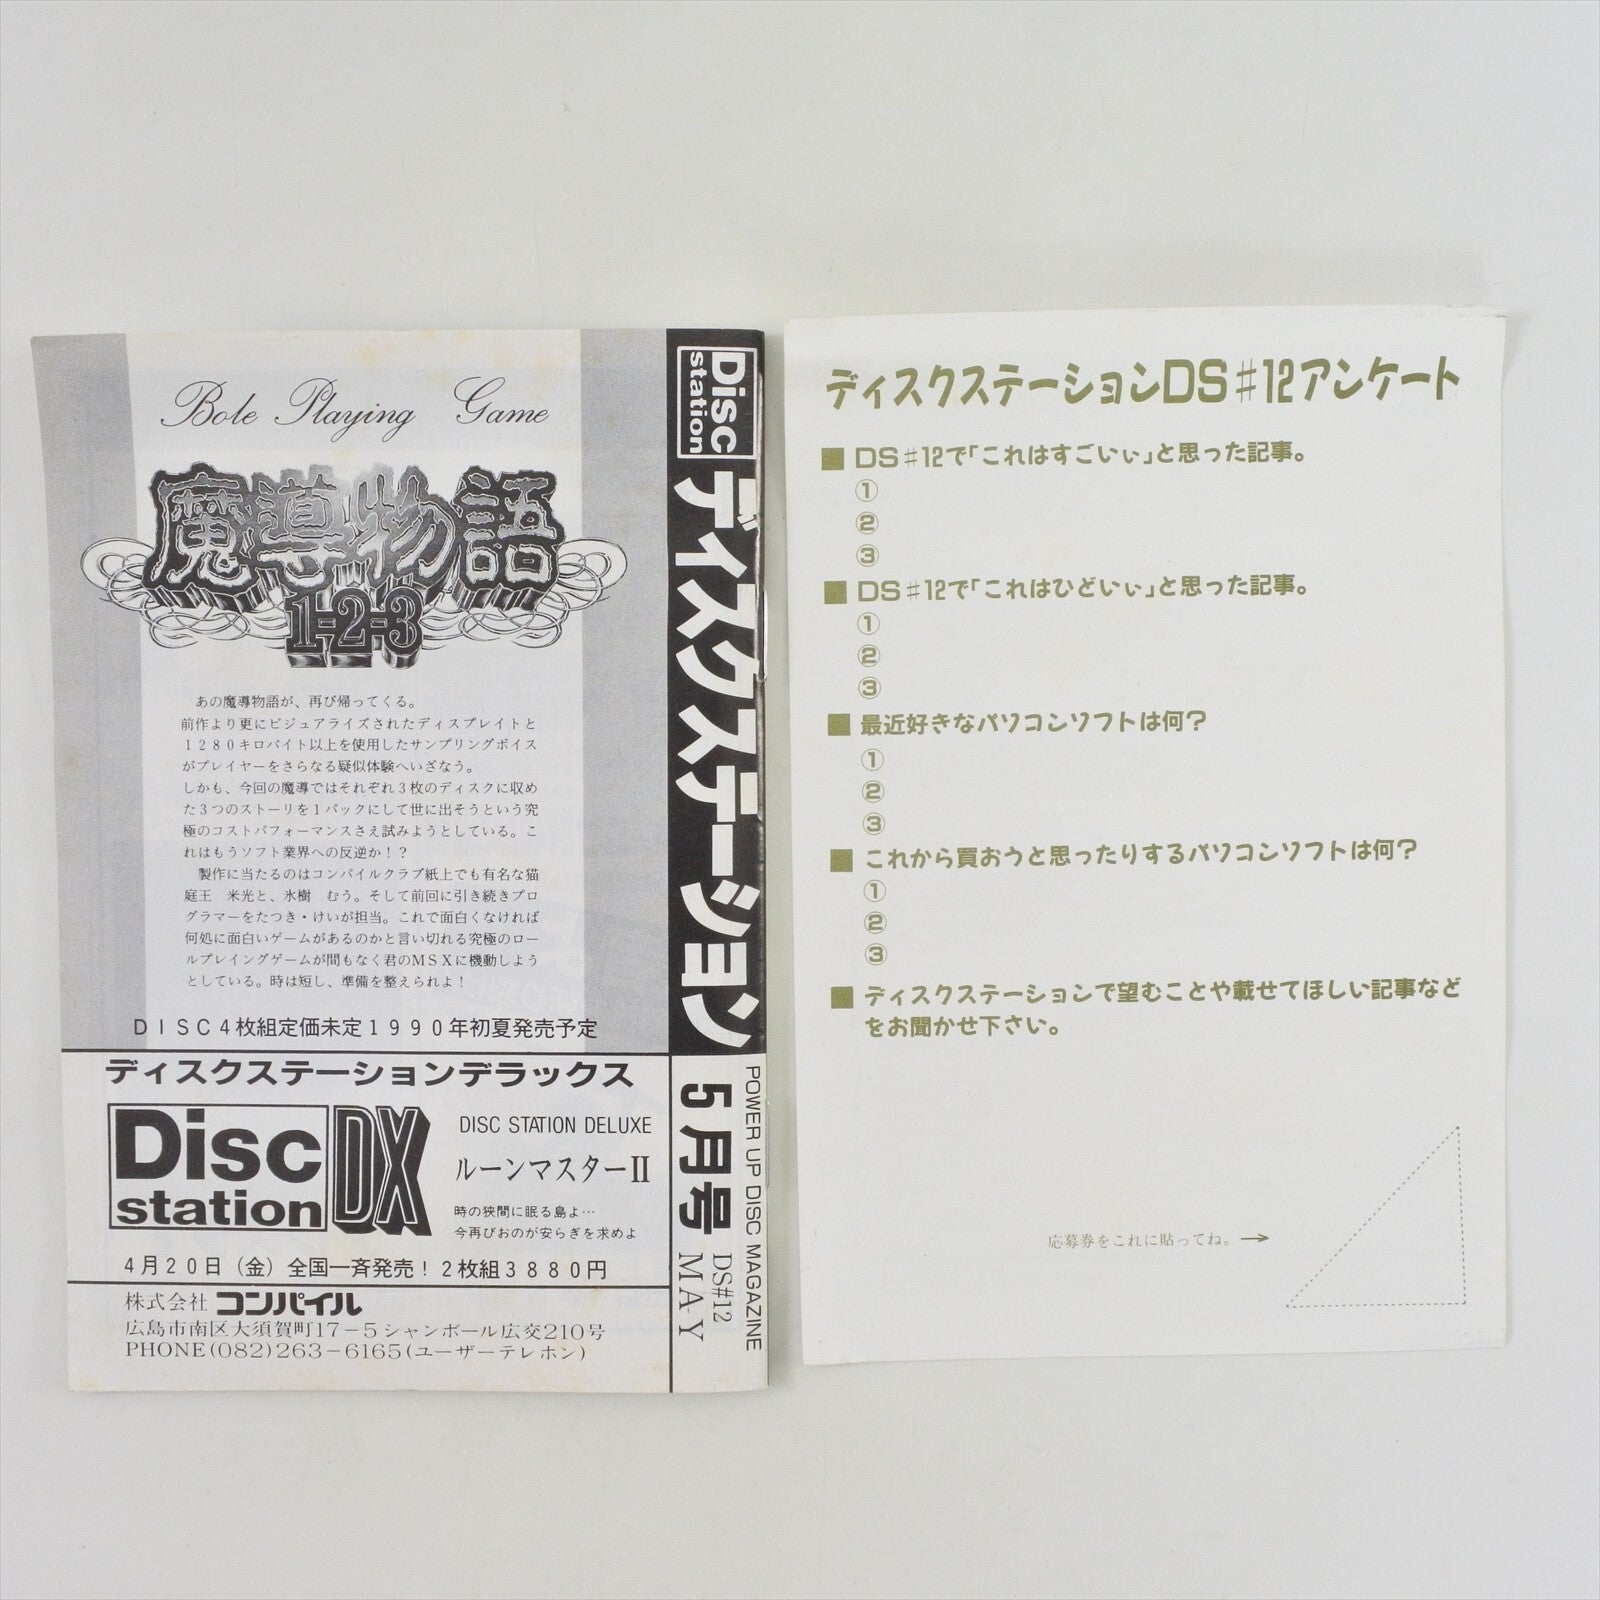 Bole Playing Game
魔導物語
1-2-3
あの魔導物語が、再び帰ってくる。
前作より更にビジュアライズされたディスプレイトと
1280キロバイト以上を使用したサンプリングボイス
がプレイヤーをさらなる疑似体験へいざなう。
しかも、今回の魔導ではそれぞれ3枚のディスクに収め
た3つのストーリを1パックにして世に出そうという究
極のコストパフォーマンスさえ試みようとしている。こ
れはもうソフト業界への反逆か!?
製作に当たるのはコンパイルクラブ紙上でも有名な猫
庭王 米光と、氷樹 むう。そして前回に引き続きプロ
グラマーをたつき・けいが担当。これで面白くなければ
何処に面白いゲームがあるのかと言い切れる究極のロー
ルプレイングゲームが間もなく君のMSXに機動しよう
としている。時は短し、準備を整えられよ!
DISC4枚組定価未定1990年初夏発売予定
ディスクステーションデラックス
Disc
station
DX
DISC STATION DELUXE
ルーンマスターII
時の狭間に眠る島よ…
今再びおのが安らぎを求めよ
4月20日(金)全国一斉発売!2枚組3880円
株式会社 コンパイル
広島市南区大須賀町17-5シャンボール広交210号
PHONE(082)263-6165(ユーザーテレホン)
Disc
station
ディスクステーション
5月号
POWER UP DISC MAGAZINE
DS#12
MA-Y
ディスクステーションDS#12アンケート
■ DS#12で「これはすごいぃ」と思った記事。
①
②
③
■ DS#12で「これはひどいぃ」と思った記事。
①
②
③
■ 最近好きなパソコンソフトは何?
①
②
③
■ これから買おうと思ったりするパソコンソフトは何?
①
②
③
■ ディスクステーションで望むことや載せてほしい記事など
をお聞かせ下さい。
応募券をこれに貼ってね。→